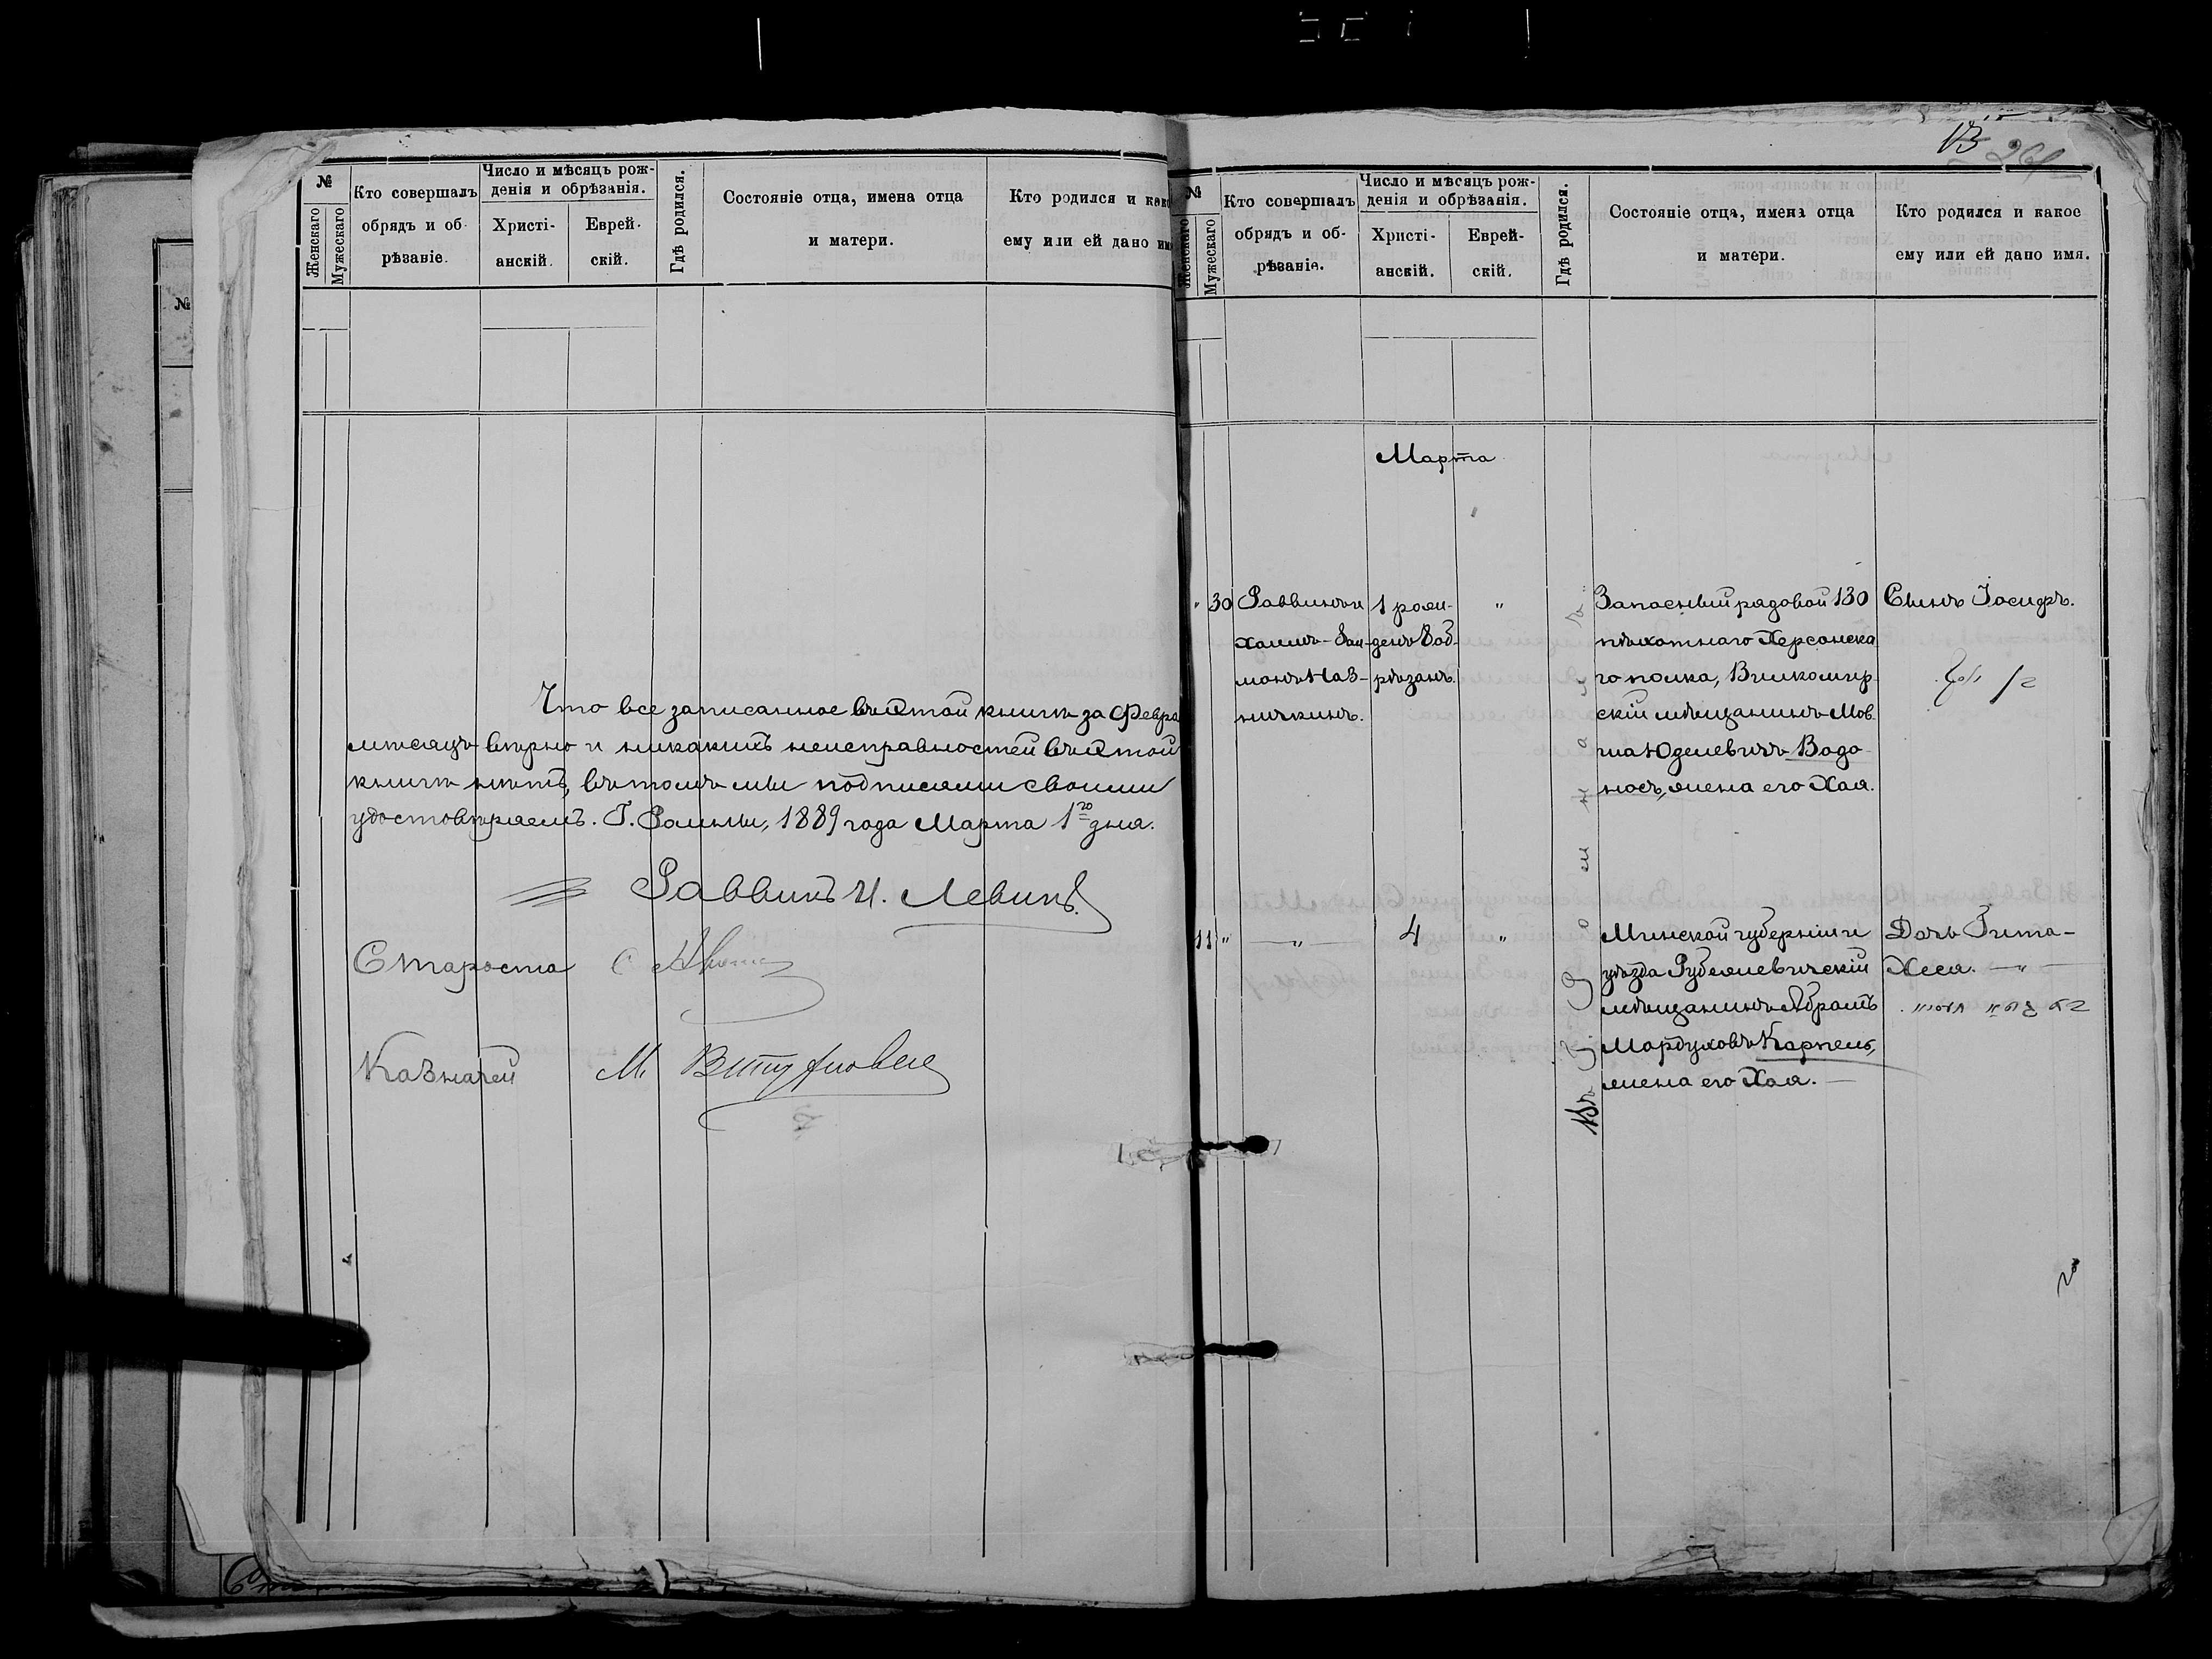 №
Женскаго
Мужескаго
Кто совершалъ
обрядъ и об-
рѣзаніе.
Число и мѣсяцъ рож-
денія и обрѣзанія.
Христі-
анскій.
Еврей-
скій.
Гдѣ родился.
Состояніе отца, имена отца
и матери.
Кто родился и како
ему или ей дано им
Что все записанное въ этой книгѣ за Февра
мѣсяцъ вѣрно и никакихъ неисправностей въ этой
книгѣ нѣтъ, въ томъ мы подписями своими
удостовѣряемъ. Г. Ромны, 1889 года Марта 1го дня.
Раввинъ И. Левинъ.
Староста
Казначей М.
13
№
Женскаго
Мужескаго
Кто совершалъ
обрядъ и об-
рѣзаніе.
Число и мѣсяцъ рож-
денія и обрѣзанія.
Христі-
анскій.
Еврей-
скій.
Гдѣ родился.
Состояніе отца, имена отца
и матери.
Кто родился и какое
ему или ей дано имя.
Марта
" 30 Раввинъ и 1 рож- " Запасный рядовой 130 Сынъ Іосифъ.
Хаимъ-Зал- денъ 8 об- пѣхотнаго Херсонска
монъ Наз- рѣзанъ. го полка, Вилкомир
ничкинъ. скій мѣщанинъ Мов
ша Юделевичъ Водо-
носъ, жена его Хая.
11 " — " — 4 " Минской губерніи и Дочь Гита-
уѣзда Рубежевичскій Хеся. — " —
мѣщанинъ Абрамъ
Мордуховъ Карпель,
жена его Хая. —